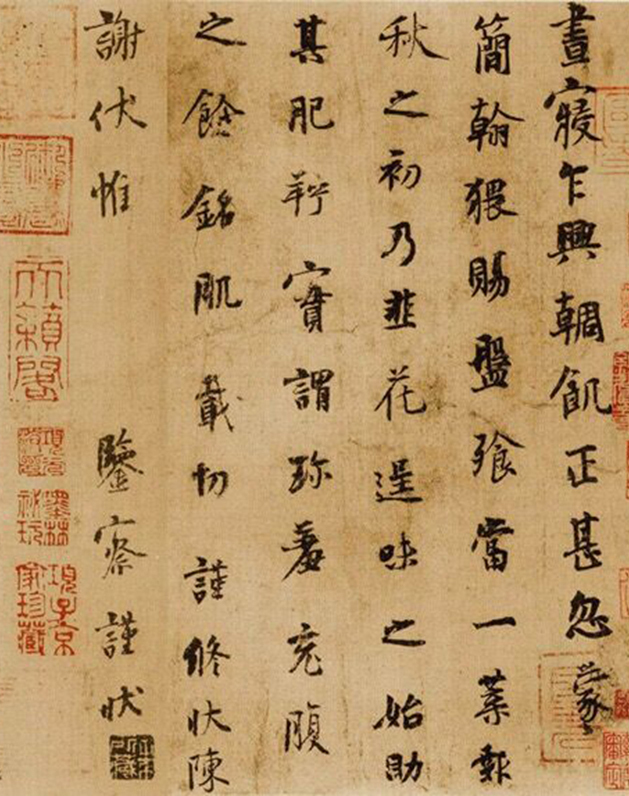 晝寢乍興輖飢正甚忽蒙
簡翰猥賜盤飧當一葉報
秋之初乃韭花逞味之始助
其肥羜實謂珍羞充腹
之餘銘肌載切謹修狀陳
謝伏惟鑒察謹狀
天籟閣
墨林祕玩
項子京家珍藏